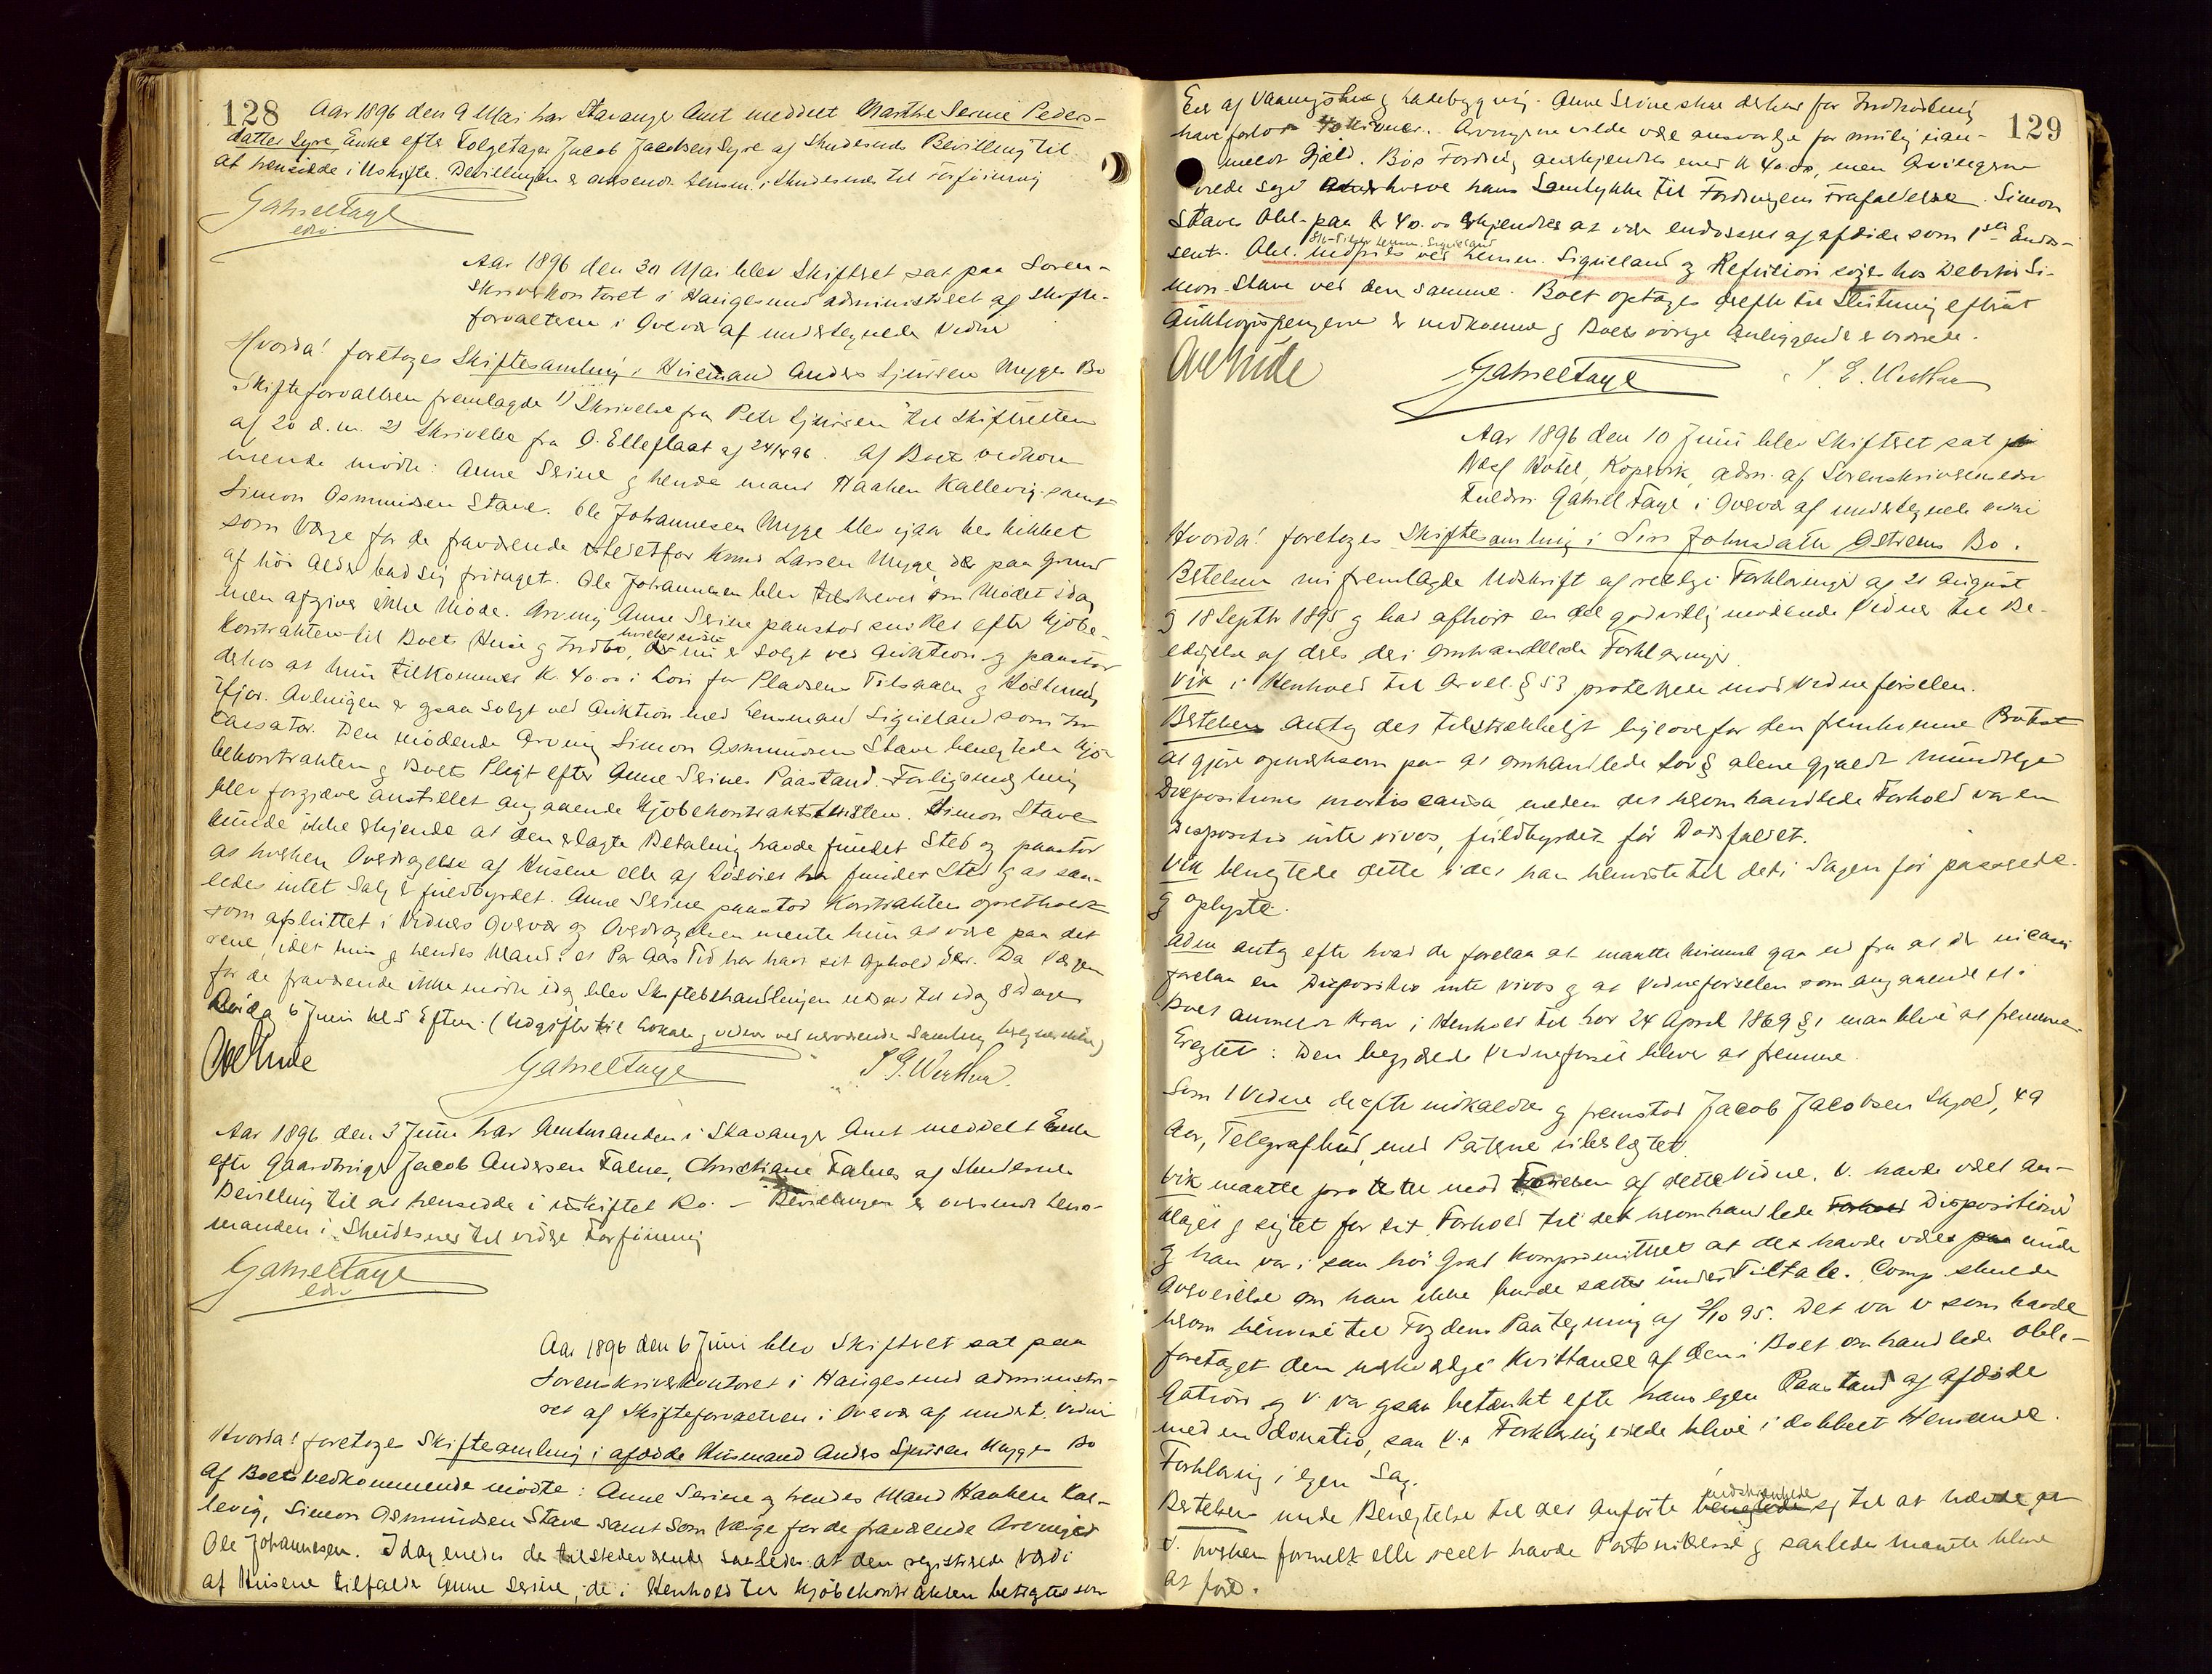 128
Aar 1896 den 9 Mai har Stavanger Amt meddelt Marthe Serine Peders-
datter Syre Enke efter Folgetager Jacob Jacobsen Syre af Skudesnes Bevilling til
at hensidde i Uskifte. Bevillingen er oversendt Lensm. i Skudesnes til Forføining
Gabriel Faye
edsv.
Aar 1896 den 30 Mai blev Skifteret sat paa Soren-
skriverkontoret i Haugesund administreret af Skifte-
forvalteren i Overvær af undertegnede Vidne
Hvorda! foretoges Skiftesamling i Huusmand Anders Sjursen Nygge Bo
Skifteforvalteren fremlagde 1) Skrivelse fra Peter Sjursen til Skifteretten
af 20 d.m. 2) Skrivelse fra O. Elleflaat af 24/4 96. Af Boet vedkom-
mende mødte: Anne Serine og hendes mand Haaken Kallevig samt
Simon Osmundsen Stave. Ole Johannesen Nygge blev igaar beskikket
som Værge for de fraværende istedetfor Knud Larsen Nygge, der paa Grund
af høi Alder bad sig fritaget. Ole Johannesen blev tilskrevet om Mødet idag
men afgiver ikke Møde. Arving Anne Serine paastod sig Ret efter Kjøbe-
kontrakten til Boets Huse og Indbo, hvilket sidste nu er solgt ved Auktion og paastod
derhos at hun tilkommer Kr. 40.00 i Løn for Pladsens Tilsaaen og Høstning
ifjor. Avlingen er ogsaa solgt ved Auktion med Lensmand Siqueland som In-
cassator. Den mødende Arving Simon Osmundsen Stave benegtede Kjø-
bekontrakten og Boets Pligt efter Anne Serines Paastand. Forligsmegling
blev forgjæves anstillet angaaende Kjøbekontraktstvisten. Simon Stave
kunde ikke erkjende at den erlagte Betaling havde fundet Sted og paastod
at hverken Overdragelse af Husene eller af Løsøret har fundet Sted og at saa-
ledes intet Salg er fuldbyrdet. Anne Serine paastod Kontrakten opretholdt
som afsluttet i Vidners Overvær og Overdragelsen mente hun at være paa det
rene, idet hun og hendes Mand i et Par Aars Tid har havt sit Ophold der. Da Værgen
for de fraværende ikke mødte idag blev Skiftebehandlingen udsat til idag 8 Dage
6 Juni Kl 5 Efterm. (Udgifter til Lokale og vidner ved nærværende Samling beregnes ikke)
Gabriel Faye
Aar 1896 den 3 Juni har Amtmanden i Stavanger Amt meddelt Enke
efter Gaardbruger Jacob Andersen Falnes, Christiane Falnes af Skudesnes
Bevilling til at hensidde i uskiftet Bo. – Bevillingen er oversendt Lens-
manden i Skudesnes til videre Forføining
Gabriel Faye
edsv
Aar 1896 den 6 Juni blev Skifteret sat paa
Sorenskriverkontoret i Haugesund administre-
ret af Skifteforvalteren i Overvær af undert. Vidne
Hvorda! foretoges Skiftesamling i afdøde Huusmand Anders Sjursen Nygge Bo
Af Boets vedkommende mødte: Anne Serine og hendes Mand Haaken Kal-
levig, Simon Osmundsen Stave samt som Værge for de fraværende Arvinger
Ole Johannesen. Idag enedes de tilstedeværende saaledes at den registrerede Værdi
af Husene tilfalder Anne Serine, der i Henhold til Kjøbekontrakten betragtes som
129
Eier af Vaaningshus og Ladebygning. Anne Serine skal derhos for Indhøstning
have forlods 40 Kroner. Arvingerne vilde være ansvarlige for mulig uan-
meldt Gjæld. Boets Fordring anerkjendtes med Kr 40.00, men Arvingerne
vilde søge hans Samtykke til Fordringens Frafaldelse. Simon
Staves Obl. paa Kr 40.00 erkjendtes at være endosseret af afdøde som 1ste Endos-
sent. Obl. indfries ved Lensm. Siqueland og Refusion søges hos Debitor Si-
mon Stave ved den samme. Boet optages derefter til Slutning efterat
Auktionspengene er indkomne og Boets øvrige Anliggender er ordnede.
Gabriel Faye
Aar 1896 den 10 Juni blev Skifteret sat
Næs Hotel, Kopervik, adm. af Sorenskriverens edsv
Fuldm. Gabriel Faye i Overvær af undertegnede vidne
Hvorda! foretoges Skiftesamling i Siri Johnsdatter Østrems Bo.
Bertelsen fremlagde Udskrift af retslige Forklaringer af 21 August
og 18 Septbr 1895 og bad afhørt en del godvillig mødende Vidner til Be-
edigelse af dels de i omhandlede Forklaringer.
Vik i Henhold til Arvel. § 53 protesterede mod Vidneførselen.
Bertelsen antog det tilstrækkeligt ligeoverfor den fremkomne Protest
at gjøre opmærksom paa at omhandlede Lov§ alene gjaldt mundtlige
Dispositioner mortis causa, medens det heromhandlede Forhold var en
Disposition inter vivos, fuldbyrdet før Dødsfaldet.
Vik benegtede dette idet han henviste til det i Sagen før passerede
og oplyste.
Adm antog efter hvad der forelaa at maatte gaa ud fra at der in casu
forelaa en Disposition inter vivos og at Vidneførselen som angaaende et i
Boet anmeldt Krav i Henhold til Lov 24 April 1869 § 1 maa blive at fremme.
Eragtet: Den begjærede Vidneførsel bliver at fremme.
Som 1 Vidne derefter indkaldtes og fremstod Jacob Jacobsen Skjold, 49
Aar, Telegrafbud, med Parterne ubeslægtet.
Vik maatte protestere mod Førelsen af dette Vidne. V. havde været an-
klaget og sigtet for sit Forhold til det heromhandlede Forhold Disposition
og han var i saa høi Grad kompromitteret at det havde været paa under
Overveielse om han ikke burde sættes under Tiltale. Comp skulde
herom henvise til Fogdens Paategning af 2/10 95. Det var V som havde
foretaget den urigtige Kvittance af den i Boet omhandlede Obli-
gation og V. var ogsaa betænkt efter hans egen Paastand af afdøde
med en donatio, saa V.s Forklaring vilde blive i dobbelt Henseende
Forklaring i egen Sag.
Bertelsen under Benegtelse til det anførte indskrænkede sig til at hævde at
V. hverken formelt eller reelt havde Partsinteresse og saaledes maatte blive
at føre.